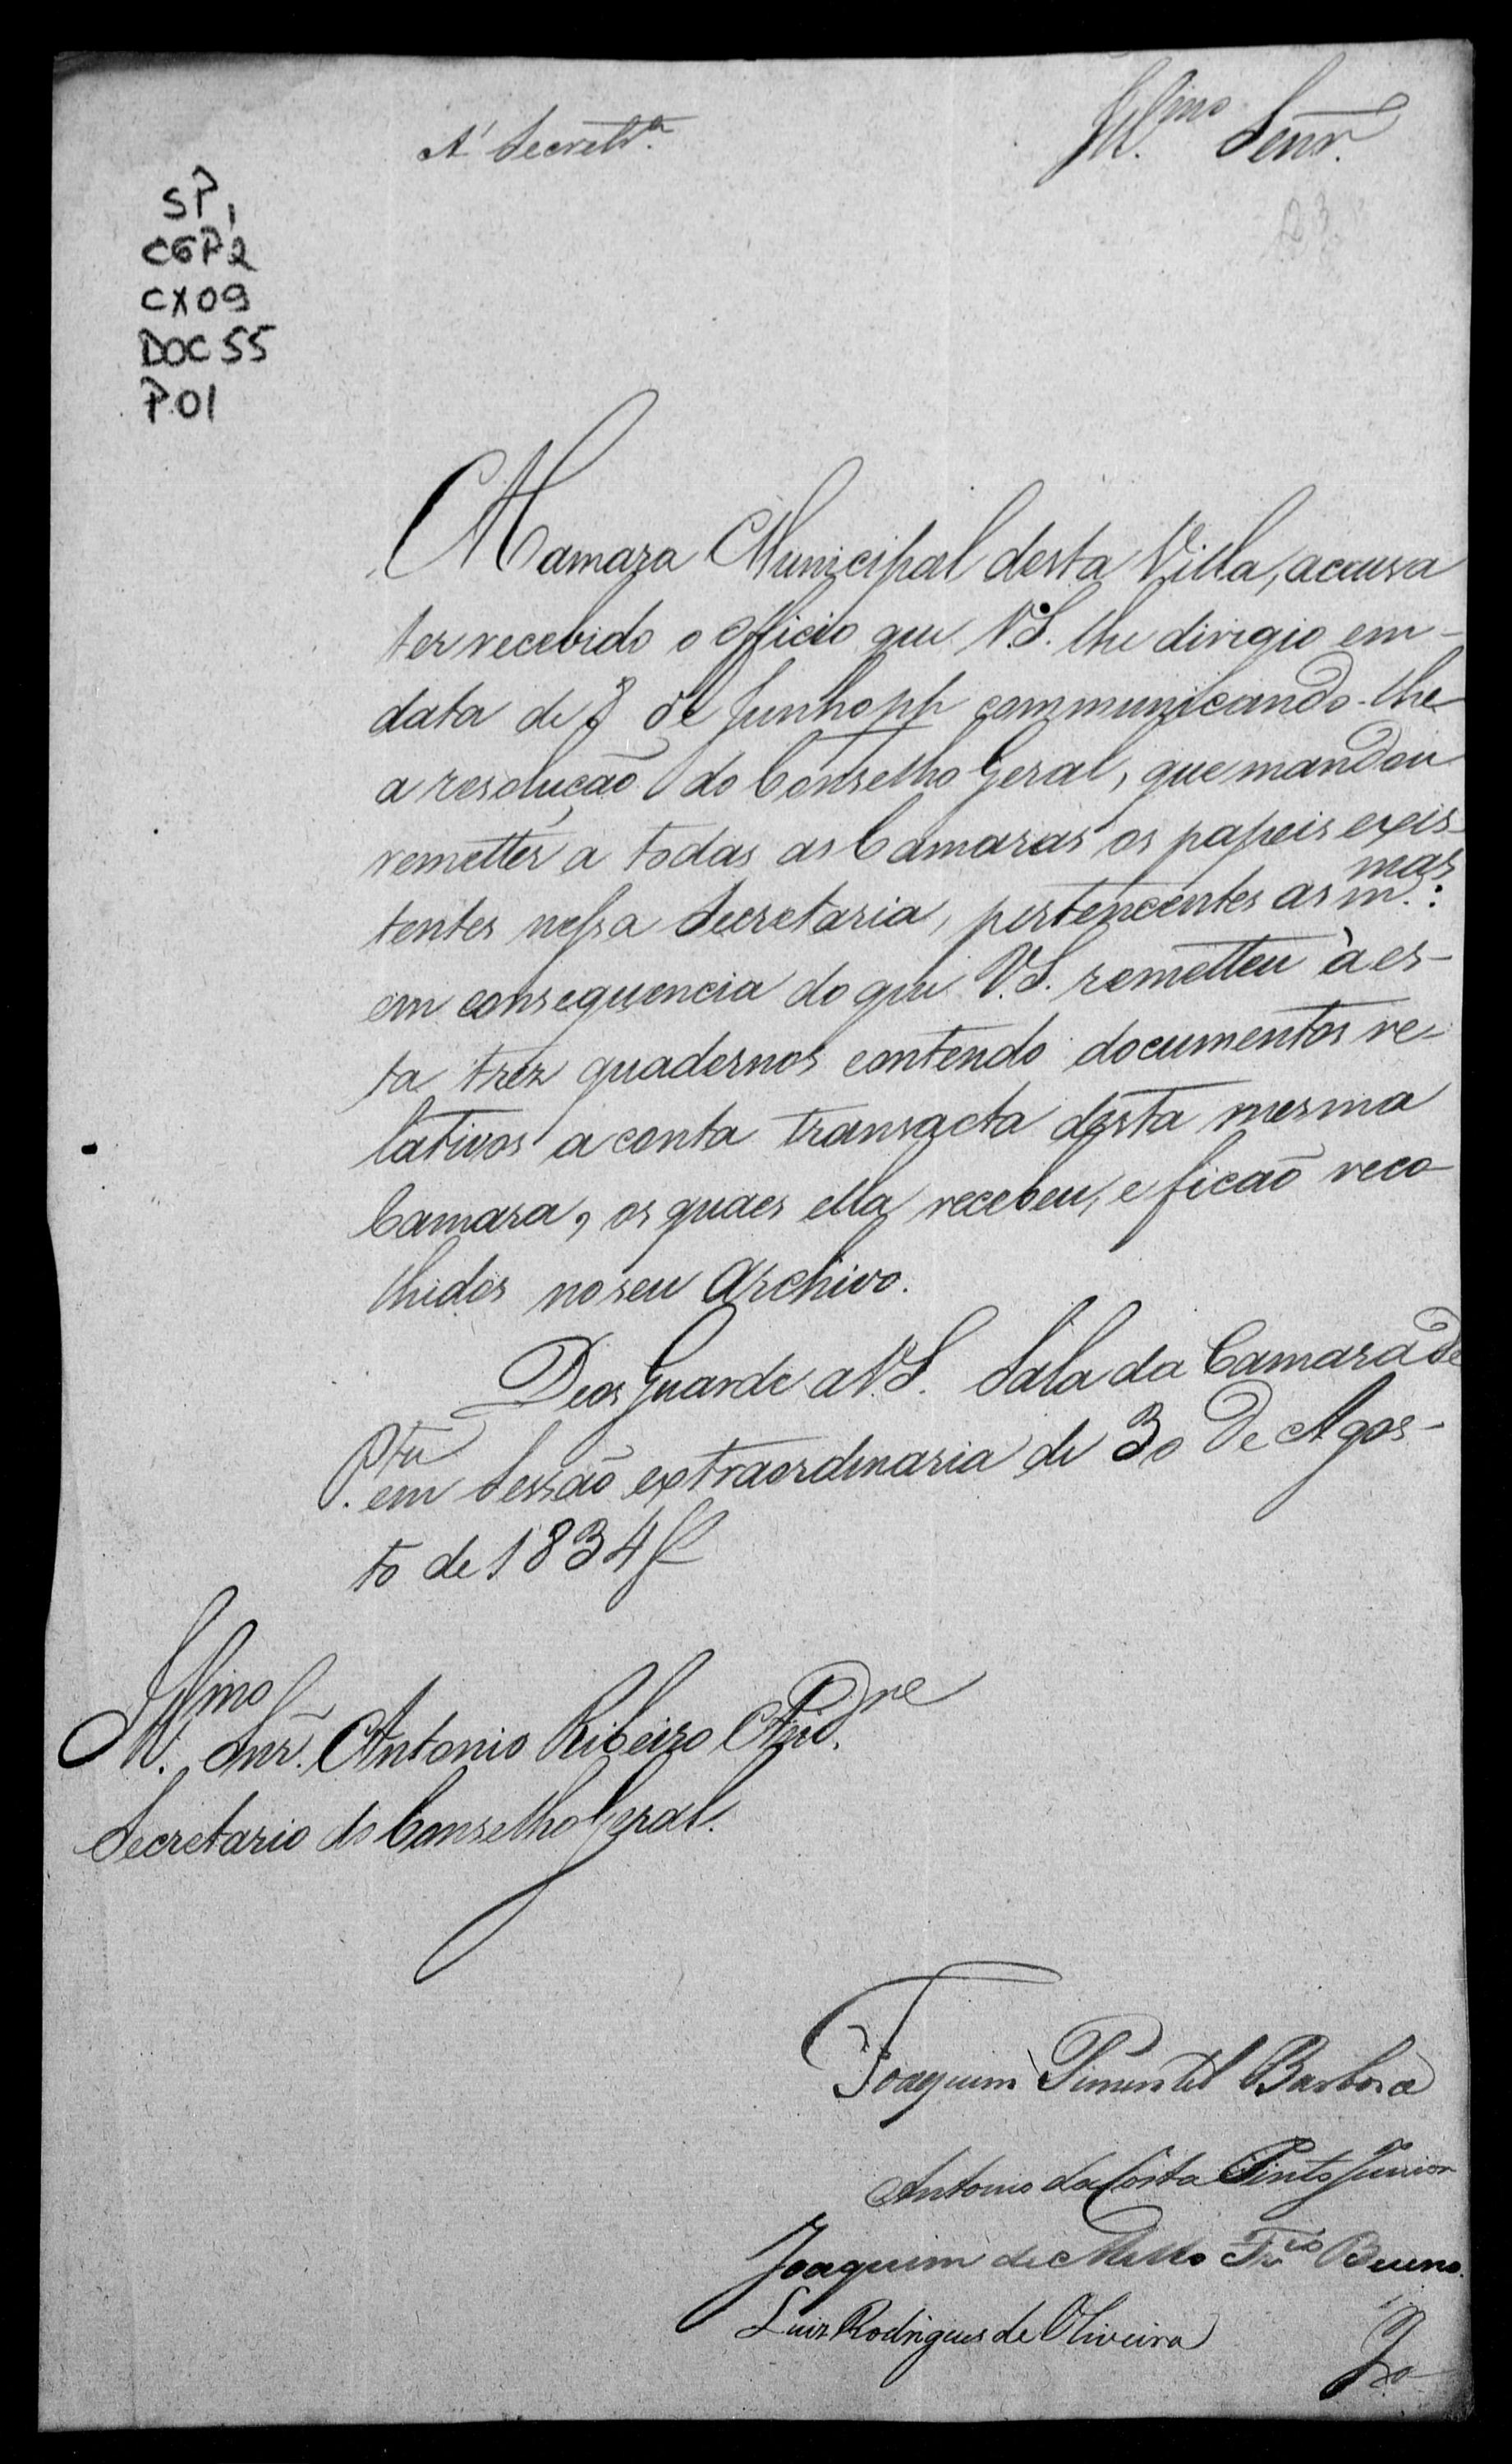 Ill.mo Senr.
A' Secretr.a
SP1
CGP2
CX09
DOC 55
P.01
A Camara Municipal desta Villa, accusa
ter recebido o officio que V.S. lhe dirigio em
data de 8 de Junho pp communicando-lhe
a resolução do Conselho Geral, que mandou
remetter a todas as Camaras os papeis exis-
tentes nessa Secretaria, pertencentes as m.mas:
em consequencia do que V.S. remetteu à es-
ta trez quadernos contendo documentos re-
lativos a conta transacta desta mesma
Camara, os quaes ella recebeu, e ficão reco
lhidos no seu Archivo.
Deos Guarde a V.S. Sala da Camara de
em Sessão extraordinaria de 30 de Agos-
to de 1834
Ill.mo Snr. Antonio Ribeiro
Secretario do Conselho Geral.
Joaquim Pimentel Barbosa
Antonio da Costa Pinto Junior
Joaquim de Mello Bueno
Luiz Rodrigues de Oliveira